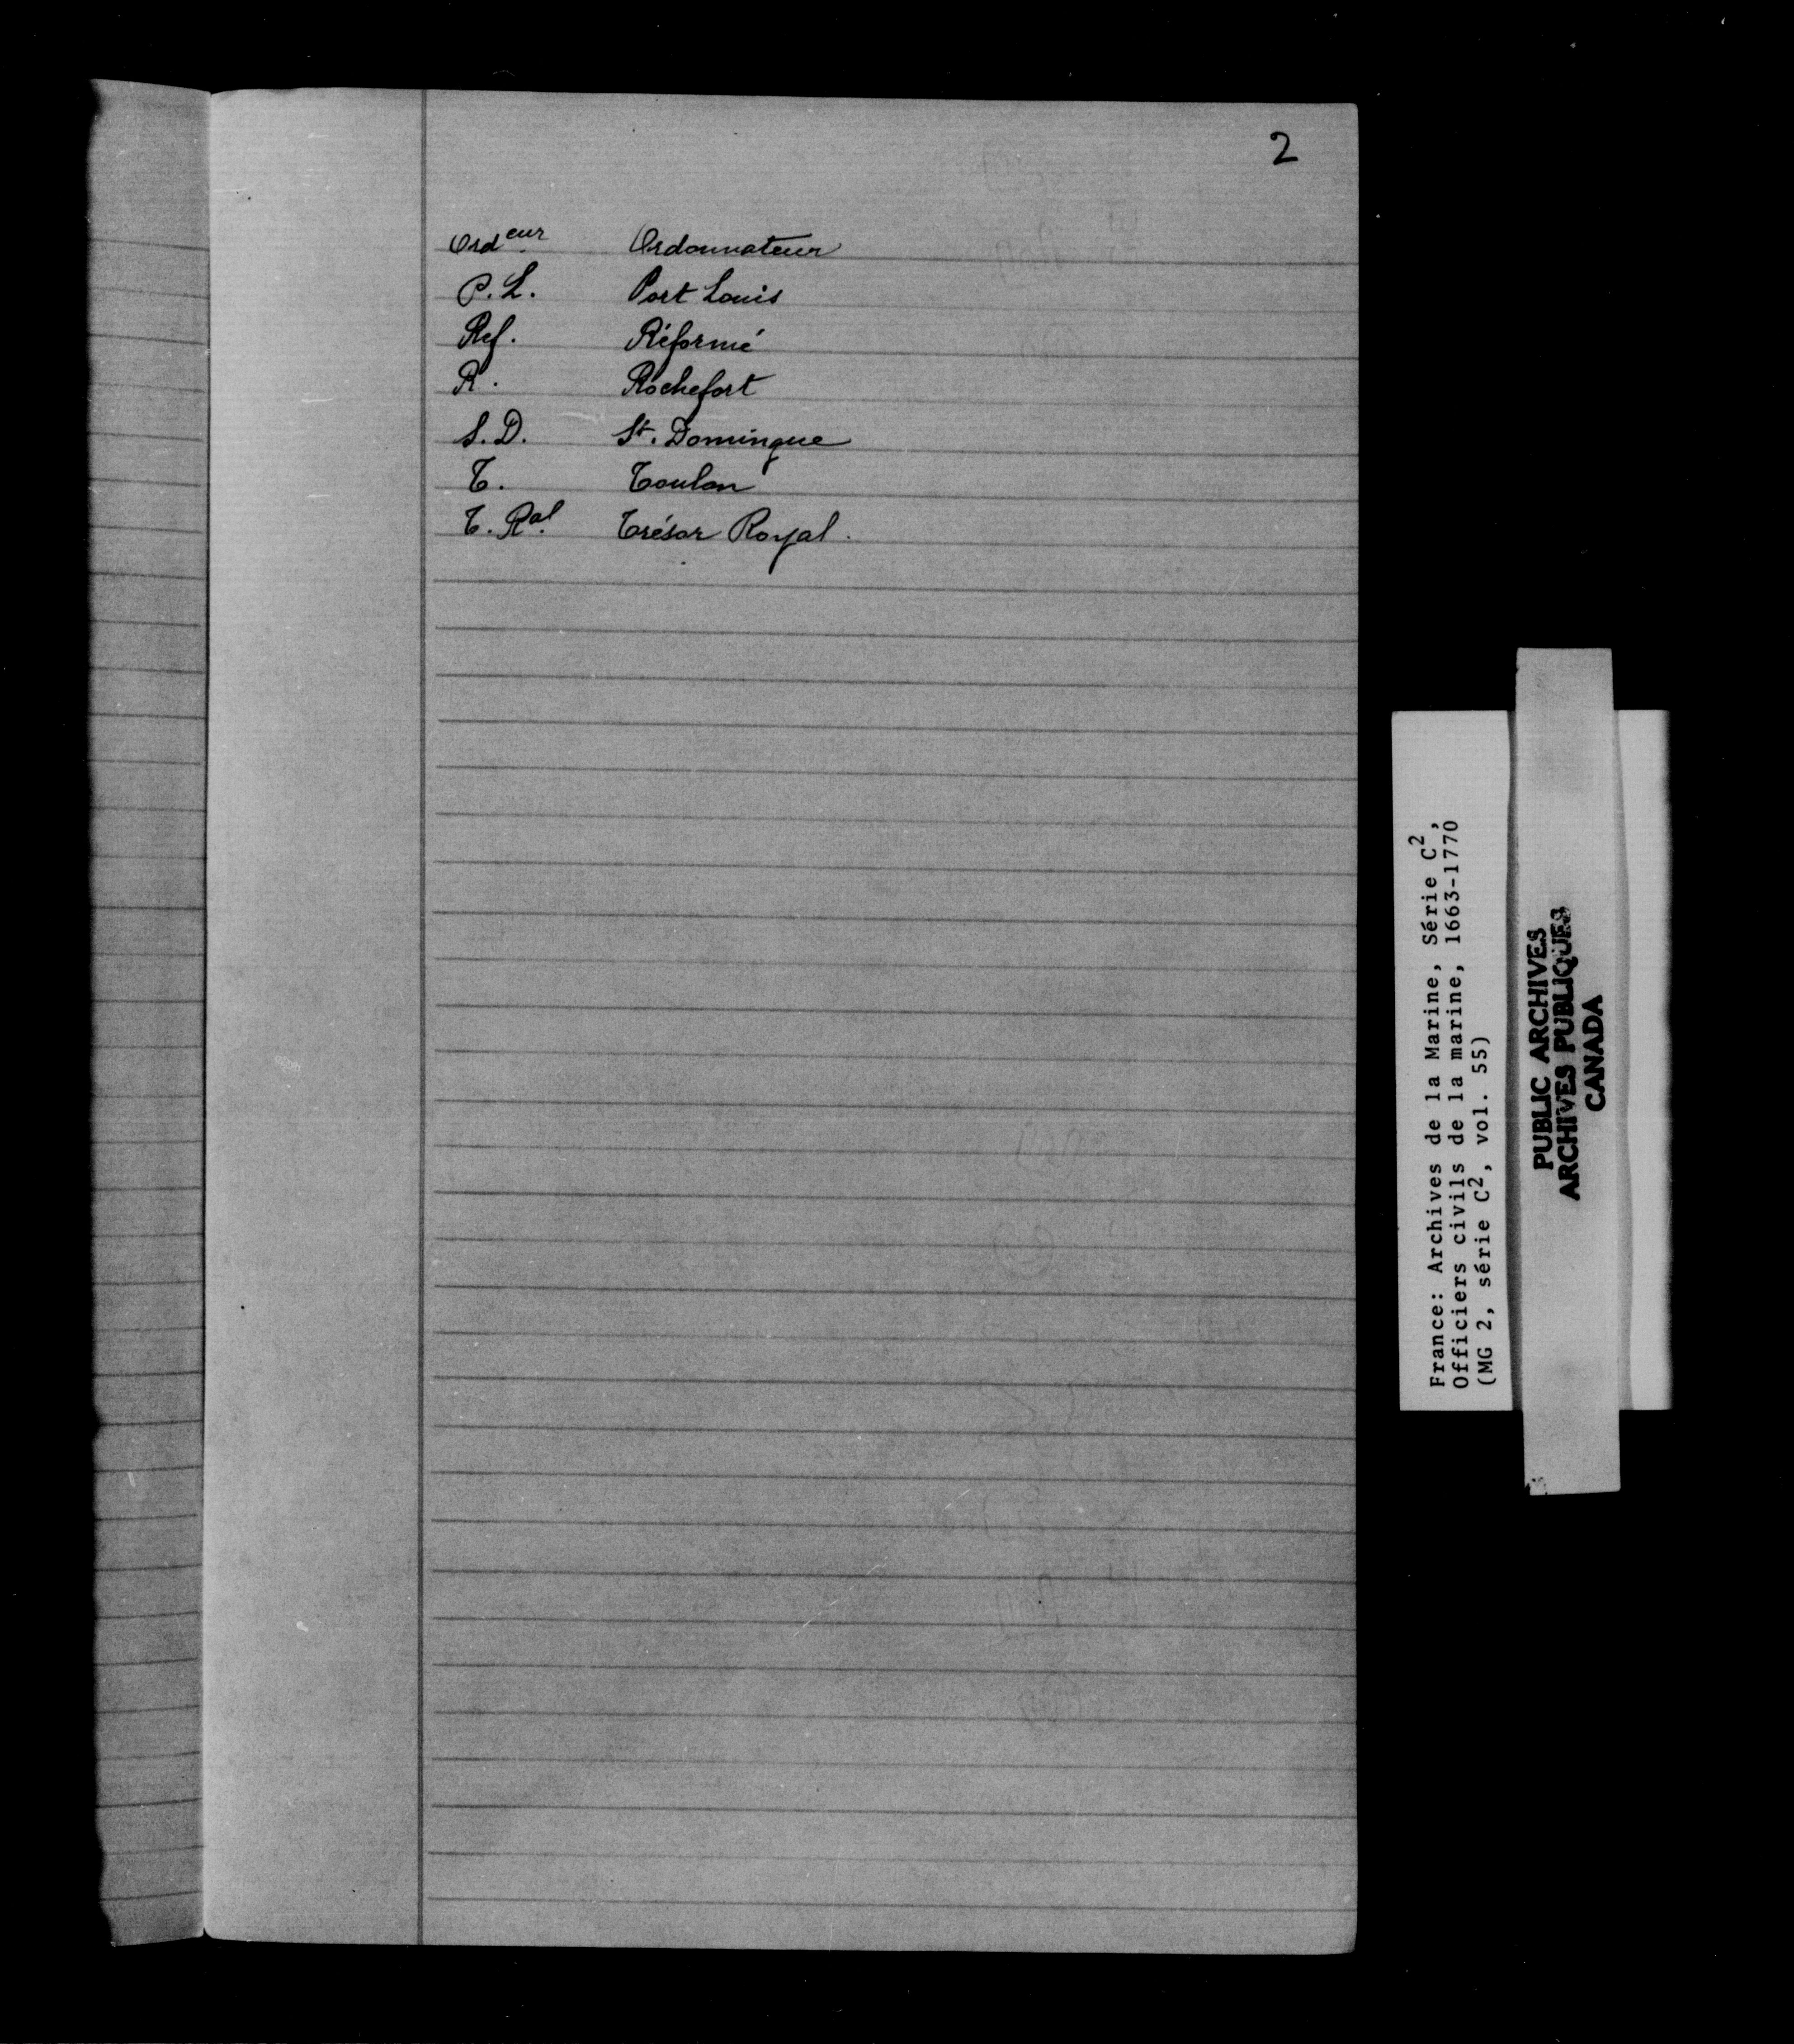 2
Ord.eur Ordonnateur
P.L. Port Louis
Ref. Réformé
R. Rochefort
S.D. St. Domingue
T. Toulon
T. Ral. Trésor Royal.
France: Archives de la Marine, Série C2,
Officiers civils de la marine, 1663-1770
(MG 2, série C2, vol. 55)
PUBLIC ARCHIVES
ARCHIVES PUBLIQUES
CANADA